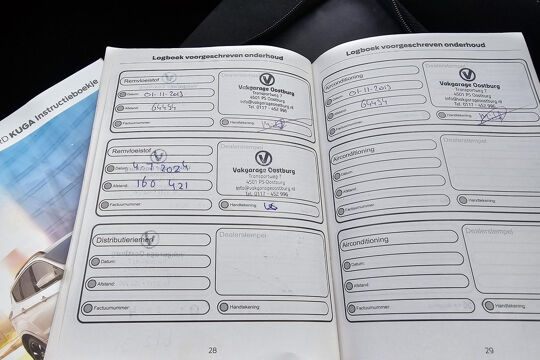 KUGA Instructieboekje
Logboek voorgeschreven onderhoud
Remvloeistof
Datum: 01-11-2019
Afstand: 64434
Factuurnummer
Vakgarage Oostburg
Transportweg 7
4501 PS Oostburg
info@vakgarageoostburg.nl
Tel. 0117 - 452 996
Handtekening
Remvloeistof
Datum: 4-7-2024
Afstand: 160 421
Factuurnummer
Dealerstempel
Vakgarage Oostburg
Transportweg 7
4501 PS Oostburg
info@vakgarageoostburg.nl
Tel. 0117 - 452 996
Handtekening
Distributieriemen
Datum:
Afstand:
Factuurnummer
Dealerstempel
Handtekening
28
Logboek voorgeschreven onderhoud
Airconditioning
Datum: 01-11-2019
Afstand: 64434
Factuurnummer
Vakgarage Oostburg
Transportweg 7
4501 PS Oostburg
info@vakgarageoostburg.nl
Tel. 0117 - 452 996
Handtekening
Airconditioning
Datum:
Afstand:
Factuurnummer
Dealerstempel
Handtekening
Airconditioning
Datum:
Afstand:
Factuurnummer
Dealerstempel
Handtekening
29